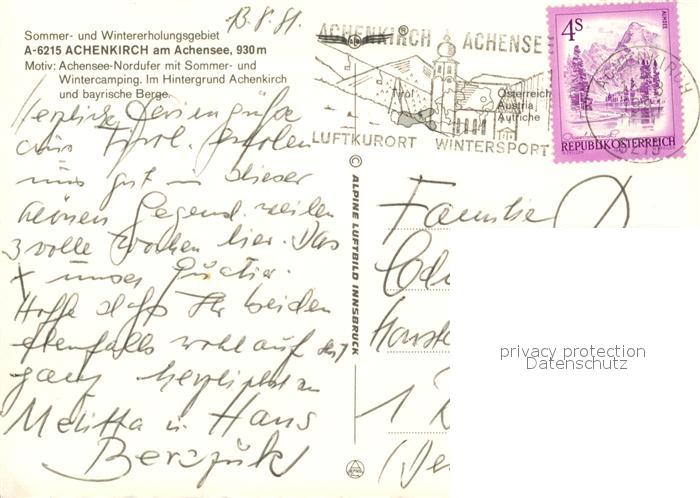 13.8.81.
Sommer- und Wintererholungsgebiet
A-6215 ACHENKIRCH am Achensee, 930 m
Motiv: Achensee-Nordufer mit Sommer- und
Wintercamping. Im Hintergrund Achenkirch
und bayrische Berge.
ACHENKIRCH ACHENSEE
Tirol
Österreich
Austria
Autriche
LUFTKURORT WINTERSPORT
4S
ALMSEE
REPUBLIK ÖSTERREICH
ACHENKIRCH
6215
Herzliche Feriengrüße
aus Tirol. erholen
uns gut in dieser
schönen Gegend. weilen
3 volle Wochen hier. Das
x unser Quartier.
Hoffe daß Ihr beiden
ebenfalls wohlauf
ganz herzlichst
Melitta u. Hans
© ALPINE LUFTBILD INNSBRUCK
Familie
privacy protection
Datenschutz